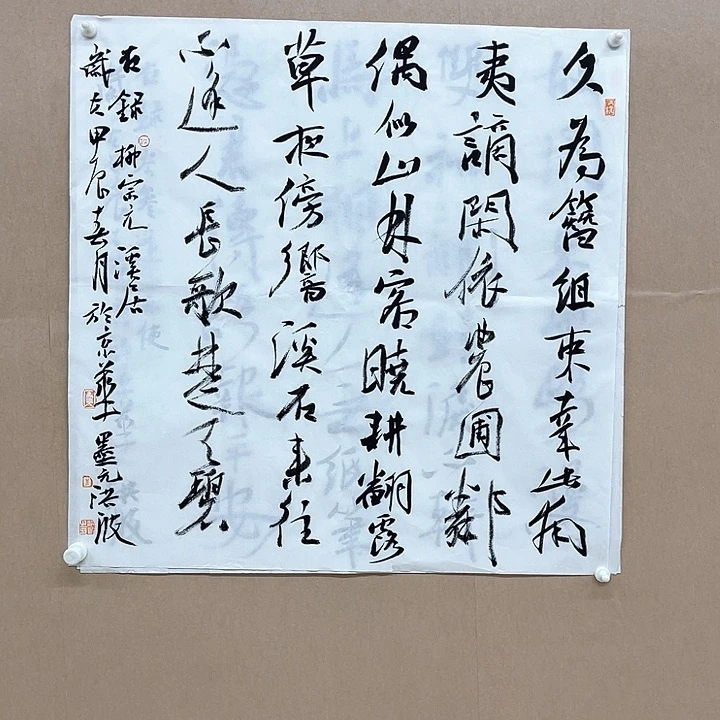 久為簪組束幸此南
夷謫閑依農圃鄰
偶似山林客曉耕翻露
草夜傍響溪石来往
不逢人長歌楚天碧
右録柳宗元溪居
歲在甲辰春月於京華墨元洪波